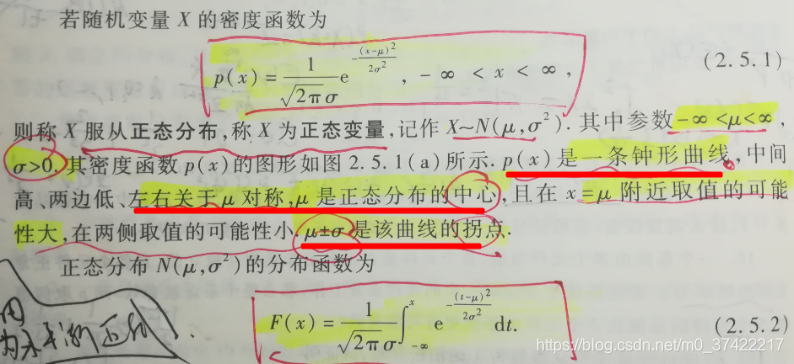 若随机变量 X 的密度函数为
p(x) = \frac{1}{\sqrt{2π}σ} e^{-\frac{(x-μ)^2}{2σ^2}}, -∞ < x < ∞, (2.5.1)
则称 X 服从正态分布,称 X 为正态变量,记作 X~N(μ,σ²).其中参数-∞<μ<∞,
σ>0.其密度函数 p(x)的图形如图 2.5.1(a)所示.p(x)是一条钟形曲线,中间
高、两边低、左右关于 μ 对称,μ 是正态分布的中心,且在 x=μ 附近取值的可能
性大,在两侧取值的可能性小.μ±σ是该曲线的拐点.
正态分布 N(μ,σ²)的分布函数为
F(x) = \frac{1}{\sqrt{2π}σ} \int_{-∞}^{x} e^{-\frac{(t-μ)^2}{2σ^2}} dt. (2.5.2)
https://blog.csdn.net/m0_37422217